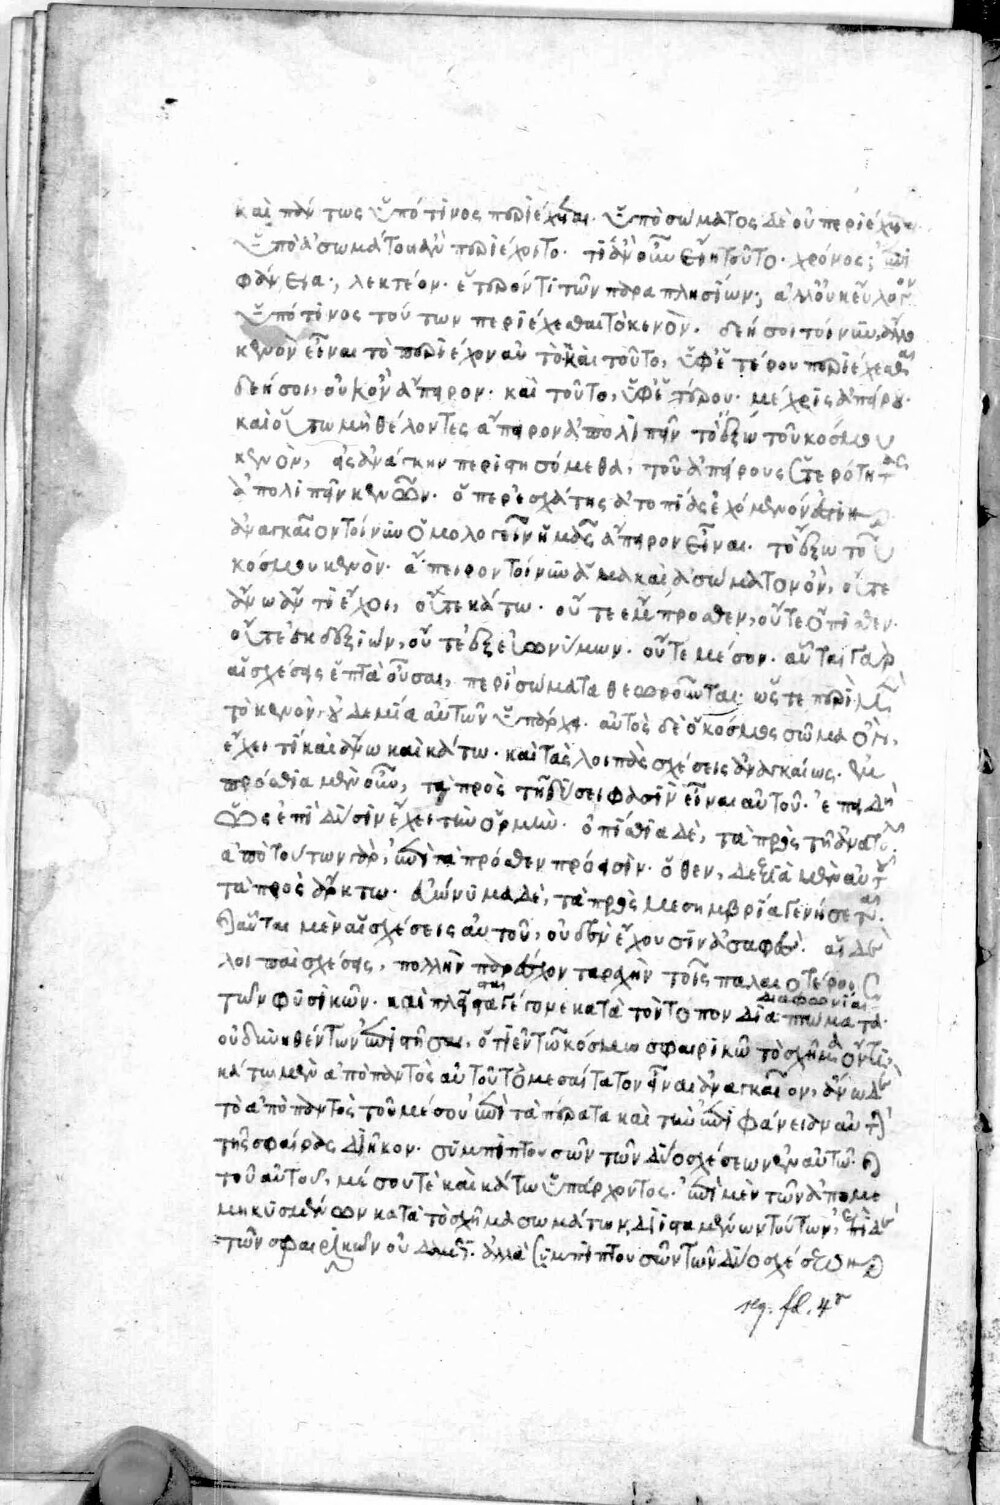 καὶ πάντως ὑπό τινος περιέχεται. ὑπὸ σώματος δὲ οὐ περιέχεται
ὑπὸ ἀσωμάτου ἂν περιέχοιτο. τί ἂν οὖν εἴη τοῦτο. χρόνος; ἐπι
φάνεια; λεκτέον. ἕτερόν τι τῶν παραπλησίων; ἀλλ' οὐκ εὔλογον
ὑπό τινος τούτων περιέχεσθαι τὸ κενὸν. δεήσοι τοίνυν, ἄλλο
κενὸν εἶναι τὸ περιέχον αὐτὸ καὶ τοῦτο, ὑφ' ἑτέρου περιέχεσθαι
δεήσοι, οὐ κενοῦ ἄπειρον. καὶ τοῦτο, ὑφ' ἑτέρου. μέχρις ἀπείρου.
καὶ οὕτω μὴ θέλοντες ἄπειρον ἀπολιπεῖν τὸ ἔξω τοῦ κόσμου
κενὸν, εἰς ἀνάγκην περιστησόμεθα, τοῦ ἀπείρους ἑτερότητας
ἀπολιπεῖν κενῶν. ὅπερ ἐσχάτης ἀτοπίας ἐχόμενόν ἐστιν
ἀναγκαῖον τοίνυν ὁμολογεῖν ἡμᾶς ἄπειρον εἶναι. τὸ ἔξω τοῦ
κόσμου κενὸν. ἄπειρον τοίνυν ἅμα καὶ ἀσώματον ὂν, οὔτε
ἄνω ἄν τι ἔχοι, οὔτε κάτω. οὔτε ἔμπροσθεν, οὔτε ὄπισθεν.
οὔτε ἐκ δεξιῶν, οὔτε ἐξ εὐωνύμων. οὔτε μέσον. αὗται γὰρ
αἱ σχέσεις ἑπτὰ οὖσαι, περὶ σώματα θεωροῦνται. ὥστε περὶ μὲν
τὸ κενὸν, οὐδεμία αὐτῶν ὑπάρχει. αὐτὸς δὲ ὁ κόσμος σῶμα ὢν,
ἔχει τι καὶ ἄνω καὶ κάτω. καὶ τὰς λοιπὰς σχέσεις ἀναγκαίως. ἐμ
πρόσθια μὲν οὖν, τὰ πρὸς τῇ δύσει φασὶν εἶναι αὐτοῦ. ἐπειδὴ
ὡς ἐπὶ δύσιν ἔχει τὴν ὁρμὴν. ὀπίσθια δὲ, τὰ πρὸς τῇ ἀνατολῇ.
ἀπὸ τούτων γὰρ, ἐπὶ τὰ πρόσθεν πρόεισιν. ὅθεν, δεξιὰ μὲν αὐτοῦ
τὰ πρὸς ἄρκτω. εὐώνυμα δὲ, τὰ πρὸς μεσημβρία γενήσεται.
αὗται μὲν αἱ σχέσεις αὐτοῦ, οὐδὲν ἔχουσιν ἀσαφὲς. αἱ δὲ
λοιπαὶ σχέσεις, πολλὴν παρέσχον ταραχὴν τοῖς παλαιοτέροις
διαφωνίαι
τῶν φυσικῶν. καὶ πλεῖσται γεγόνε κατὰ τὸν τόπον διαπτώματα.
οὐ δυνηθέντων ἐπιστῆσαι, ὅτι ἐν τῷ κόσμω σφαιρικῷ τὸ σχῆμα ὄντι,
κάτω μὲν ἀπὸ παντὸς αὐτοῦ τὸ μεσαίτατον εἶναι ἀναγκαῖον, ἄνω δὲ
τὸ ἀπὸ παντὸς τοῦ μέσου ἐπὶ τὰ πέρατα καὶ τὴν ἐπιφάνειαν αὐτὴν
τῆς σφαίρας διῆκον. συμπιπτουσῶν τῶν δύο σχέσεων ἐν αὐτῶ.
τοῦ αὐτοῦ, μέσου τὲ καὶ κάτω ὑπάρχοντος. ἐπὶ μὲν τῶν ἀπομε
μηκυσμένων κατὰ τὸ σχῆμα σωμάτων, διϊσταμένων τούτων, ἐπὶ δὲ
τῶν σφαιρικῶν οὐδαμῆ. ἀλλὰ συμπιπτουσῶν τῶν δύο σχέσεων
seq. fol. 4r